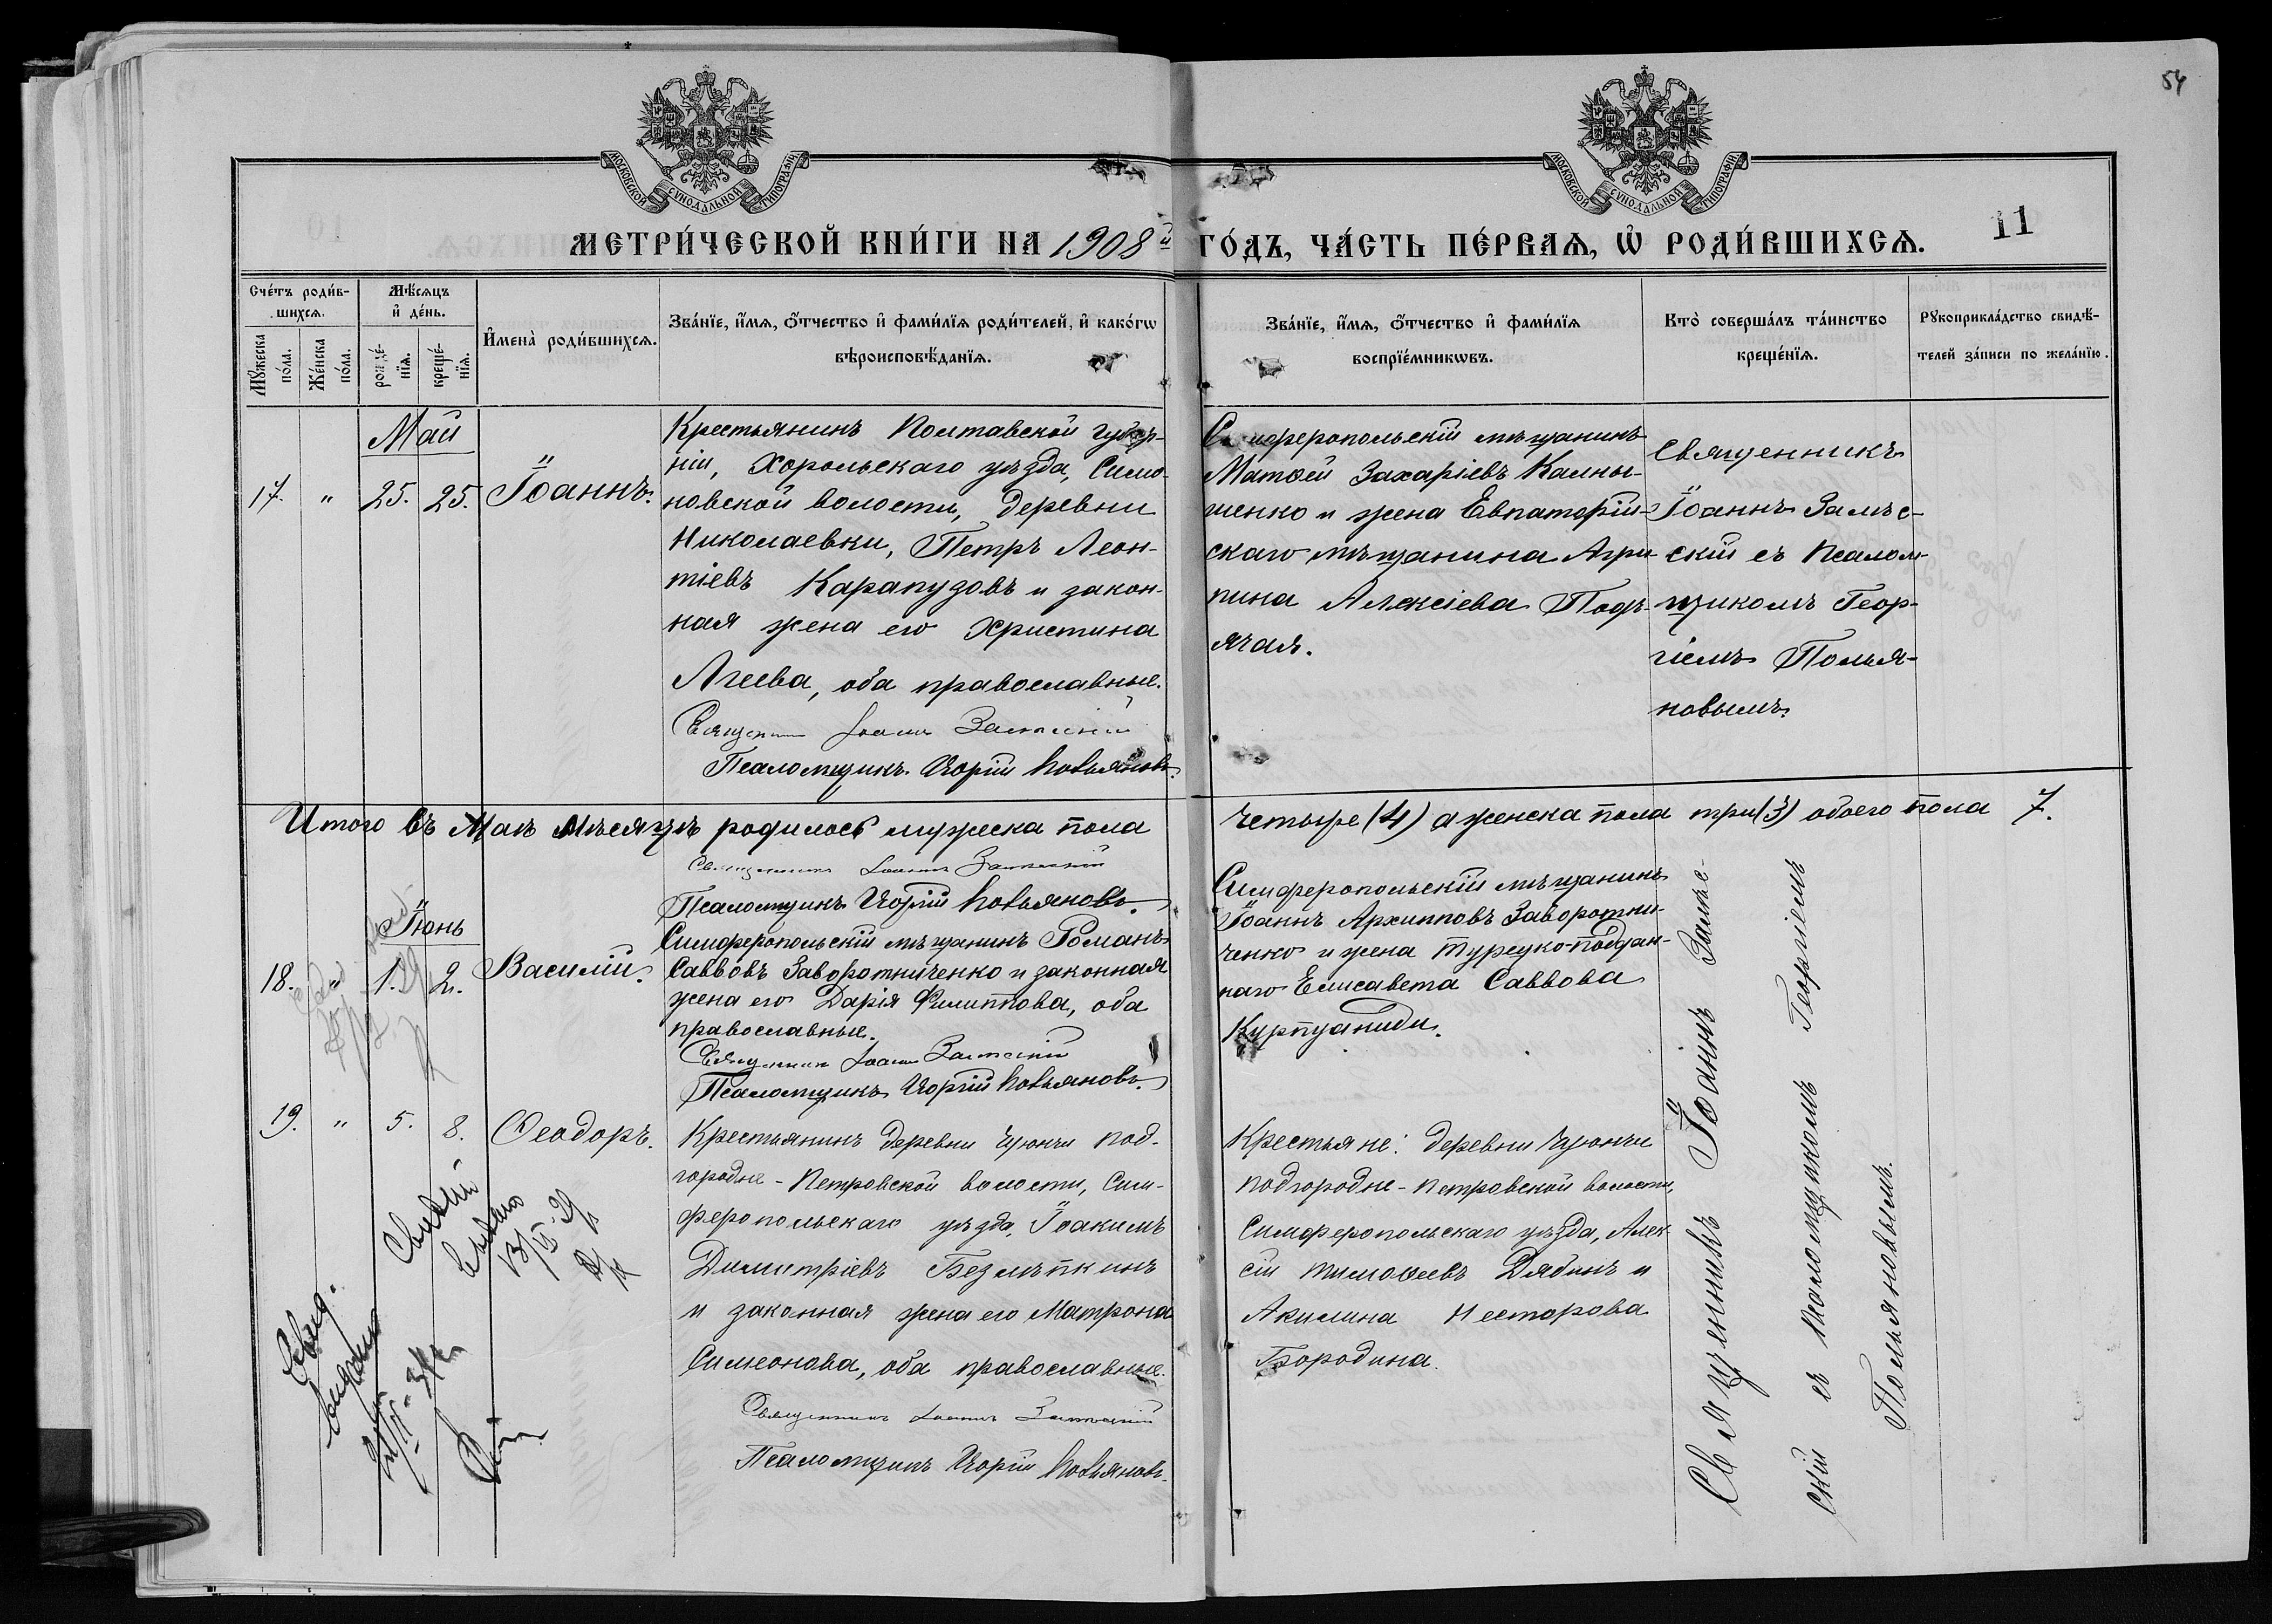 54
МОСКОВСКОЙ СѴНОДАЛЬНОЙ ТИПОГРАФІИ
МОСКОВСКОЙ СѴНОДАЛЬНОЙ ТИПОГРАФІИ
11
МЕТРИ́ЧЕСКОЙ КНИ́ГИ НА 1908й ГО́ДЪ, ЧА́СТЬ ПЕ́РВАЯ, Ѡ҆ РОДИ́ВШИХСѦ.
Сче́тъ роди́в-
шихсѧ.
Мꙋ́жеска по́ла.
Же́нска по́ла.
Мѣ́сѧцъ
и҆ де́нь.
рожде́-
нїѧ.
креще́-
нїѧ.
И҆мена̀ роди́вшихсѧ.
Зва́нїе, и҆́мѧ, ѻ҆́тчество и҆ фами́лїѧ роди́телей, и҆ како́гѡ
вѣроисповѣ́данїѧ.
Зва́нїе, и҆́мѧ, ѻ҆́тчество и҆ фами́лїѧ
воспрїе́мникѡвъ.
Кто̀ соверша́лъ та́инство
креще́нїѧ.
Рꙋкоприкла́дство свидѣ́-
телей за́писи по жела́нїю.
Май
17. " 25. 25. Іоаннъ.
Крестьянинъ Полтавской губер-
ніи, Хорольскаго уѣзда, Симо-
новской волости, деревни
Николаевки, Петръ Леон-
тіевъ Карапузовъ и закон-
ная жена его Христина
Агеева, оба православные.
Священникъ Іоаннъ Замѣсскій
Псаломщикъ Георгій Польяновъ.
Симферопольскій мѣщанинъ
Матѳей Захаріевъ Калны-
шенко и жена Евпаторій-
скаго мѣщанина Агри-
пина Алексіева Подъ-
ячая.
Священникъ
Іоаннъ Замѣс-
скій съ псалом-
щикомъ Геор-
гіемъ Полья-
новымъ.
Итого въ Маѣ мѣсяцѣ родилось мужеска пола четыре (4) а женска пола три (3) обоего пола 7.
Священникъ Іоаннъ Замѣсскій
Псаломщикъ Георгій Польяновъ.
Іюнь
18. " 1. 2. Василій.
Симферопольскій мѣщанинъ Романъ
Саввовъ Заворотниченко и законная
жена его Дарія Филиппова, оба
православные.
Священникъ Іоаннъ Замѣсскій
Псаломщикъ Георгій Польяновъ.
Симферопольскій мѣщанинъ
Іоаннъ Архипповъ Заворотни-
ченко и жена турецко-поддан-
наго Елисавета Саввова
Курпуаниди.
19. " 5. 8. Ѳеодоръ.
Крестьянинъ деревни Чуюнчи под-
городне-Петровской волости, Сим-
феропольскаго уѣзда, Іоакимъ
Димитріевъ Безмѣпкинъ
и законная жена его Матрона
Симеонова, оба православные.
Священникъ Іоаннъ Замѣсскій
Псаломщикъ Георгій Польяновъ.
Крестьяне: деревни Чуюнчи
подгородне-петровской волости,
Симферопольскаго уѣзда, Алек-
сій Тимоѳеевъ Дябинъ и
Акилина Несторова
Бородина.
Священникъ Іоаннъ Замѣс-
скій съ псаломщикомъ Георгіемъ
Польяновымъ.